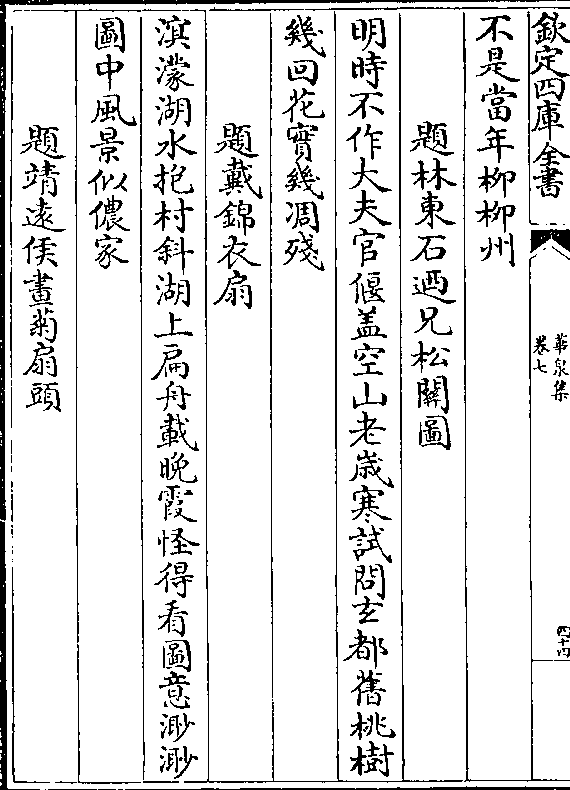 欽定四庫全書
華泉集
卷七
四十四
不是當年柳柳州
題林東石迺兄松關圖
明時不作大夫官偃盖空山老歲寒試問玄都舊桃樹
幾回花實幾凋殘
題戴錦衣扇
溟濛湖水抱村斜湖上扁舟載晚霞怪得看圖意渺渺
圖中風景似儂家
題靖遠侯畫菊扇頭